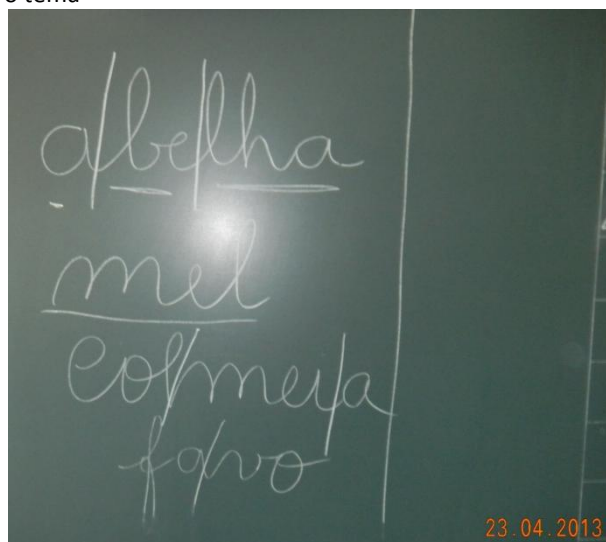 o tema
a/be/lha
mel
col/mei/a
fa/vo
23.04.2013